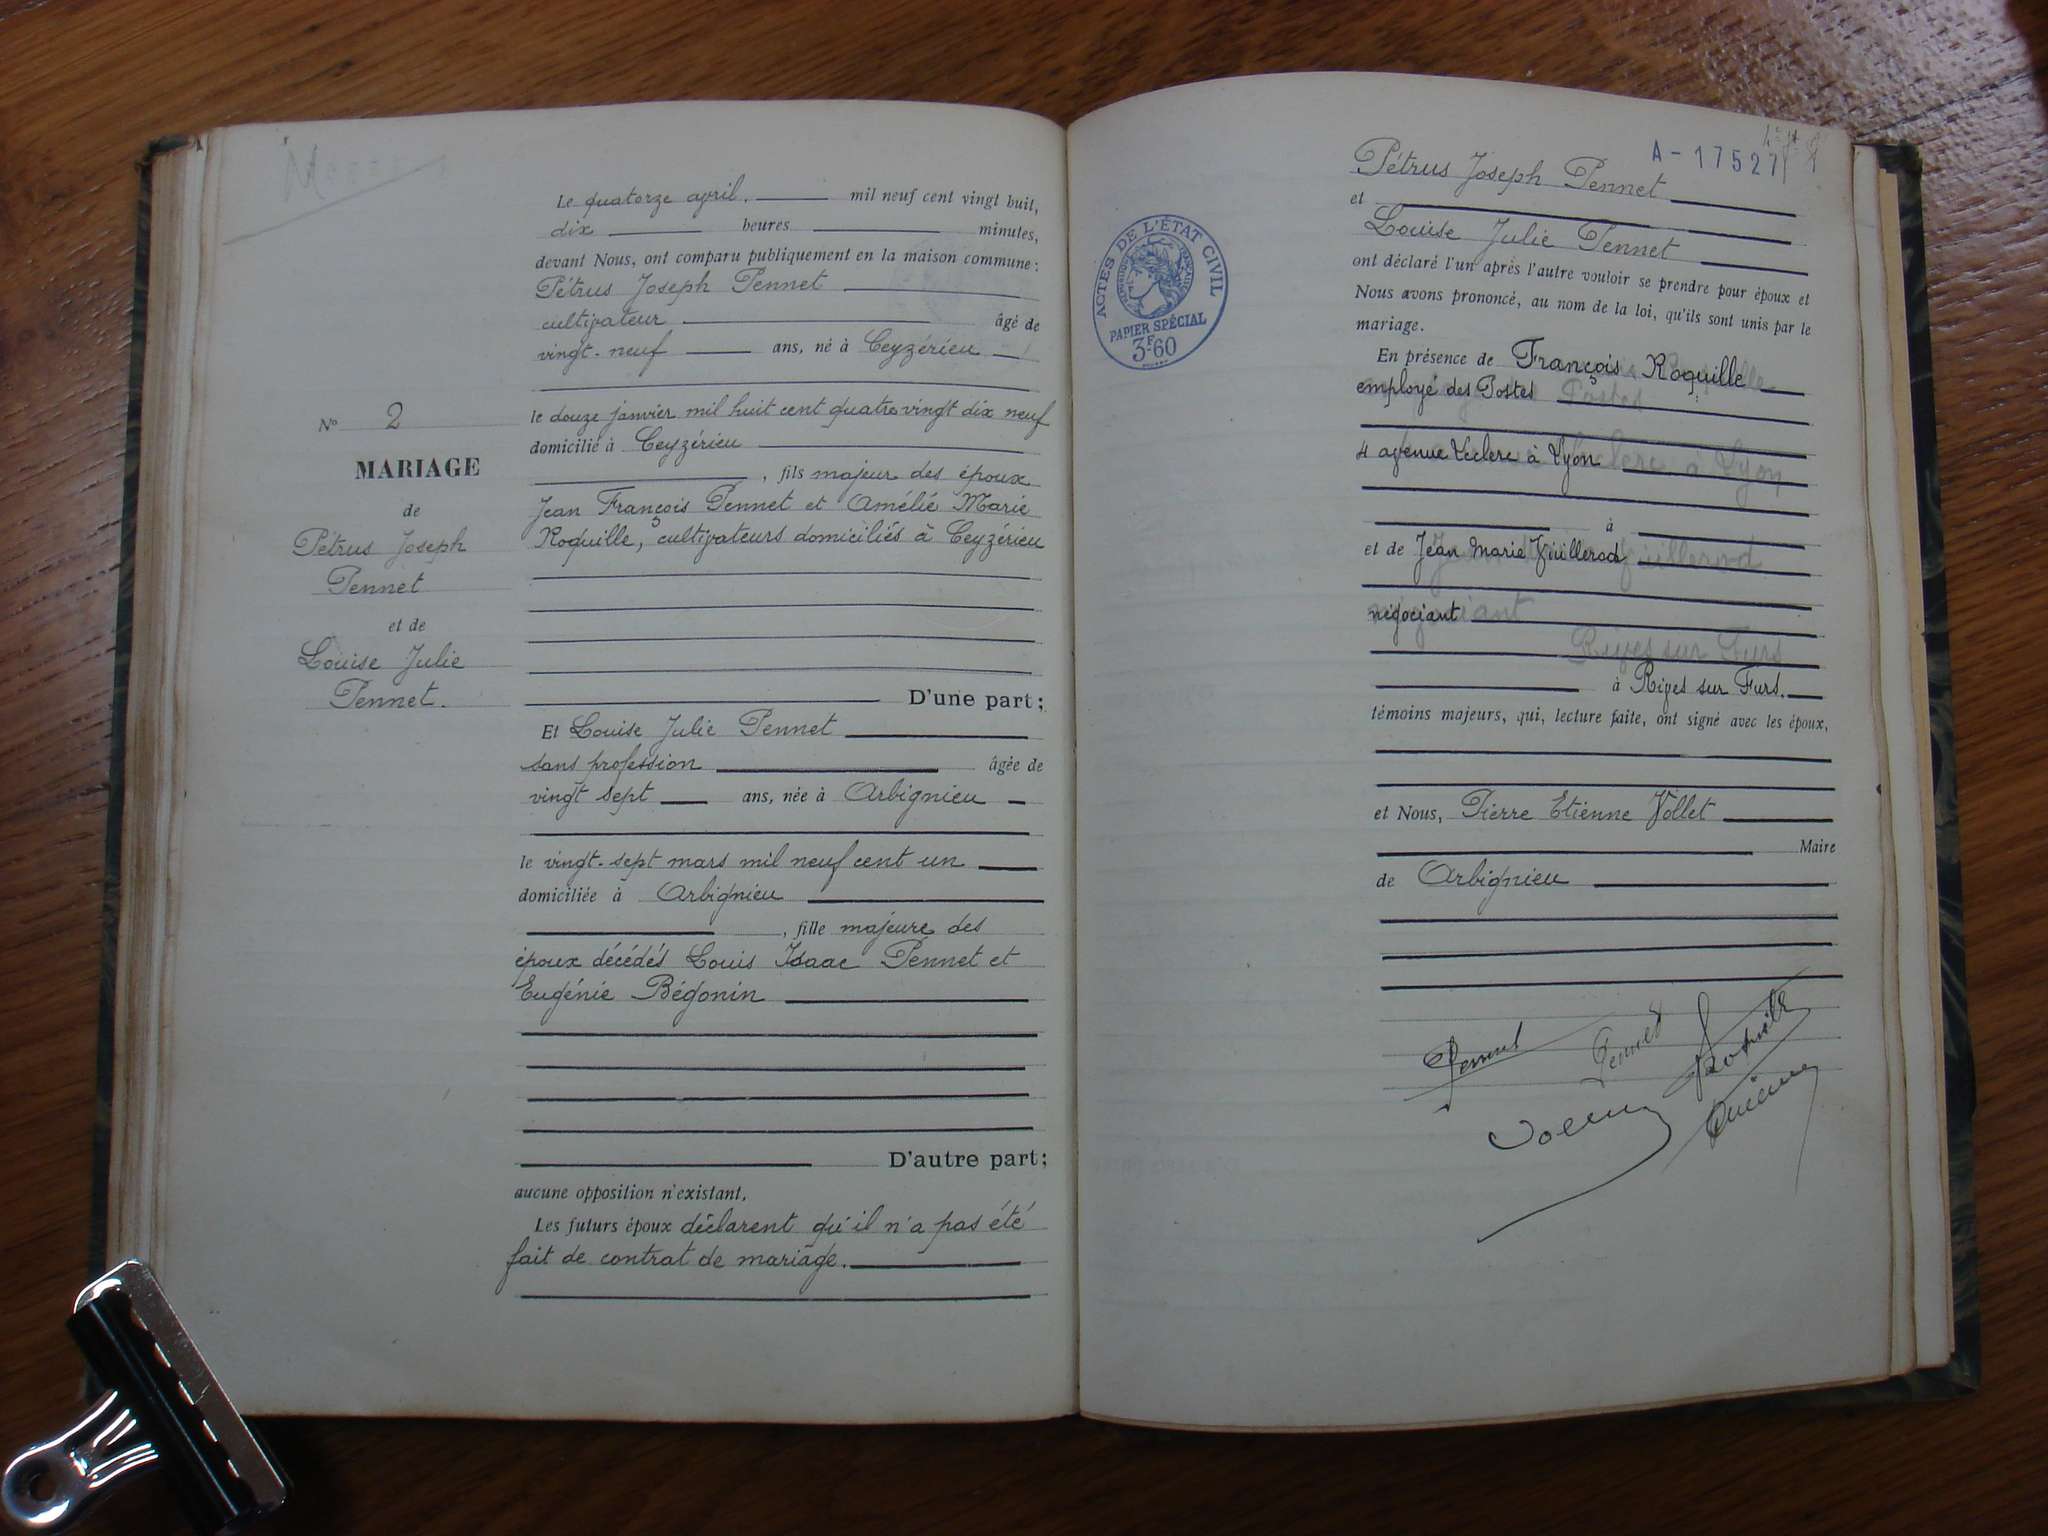 Le quatorze avril. mil neuf cent vingt huit,
dix heures minutes,
devant Nous, ont comparu publiquement en la maison commune:
Pétrus Joseph Pennet
cultivateur âgé de
vingt-neuf ans, né à Ceyzérieu
le douze janvier mil huit cent quatre vingt dix neuf
domicilié à Ceyzérieu
, fils majeur des époux
Jean François Pennet et Amélie Marie
Roquille, cultivateurs domiciliés à Ceyzérieu
D'une part;
Nº 2
MARIAGE
de
Pétrus Joseph
Pennet
et de
Louise Julie
Pennet.
Et Louise Julie Pennet
sans profession âgée de
vingt sept ans, née à Arbignieu
le vingt-sept mars mil neuf cent un
domiciliée à Arbignieu
, fille majeure des
époux décédés Louis Isaac Pennet et
Eugénie Bégonin
D'autre part;
aucune opposition n'existant.
Les futurs époux déclarent qu'il n'a pas été
fait de contrat de mariage.
A-17527
Pétrus Joseph Pennet
et
Louise Julie Pennet
ont déclaré l'un après l'autre vouloir se prendre pour époux et
Nous avons prononcé, au nom de la loi, qu'ils sont unis par le
mariage.
ACTES DE L'ÉTAT CIVIL
PAPIER SPÉCIAL
3F60
En présence de François Roquille
employé des Postes
4 avenue Leclerc à Lyon
à
et de Jean Marie
négociant
à Rives sur Furs.
témoins majeurs, qui, lecture faite, ont signé avec les époux,
et Nous, Pierre Etienne Vollet
Maire
de Arbignieu
Pennet
Pennet
Roquille